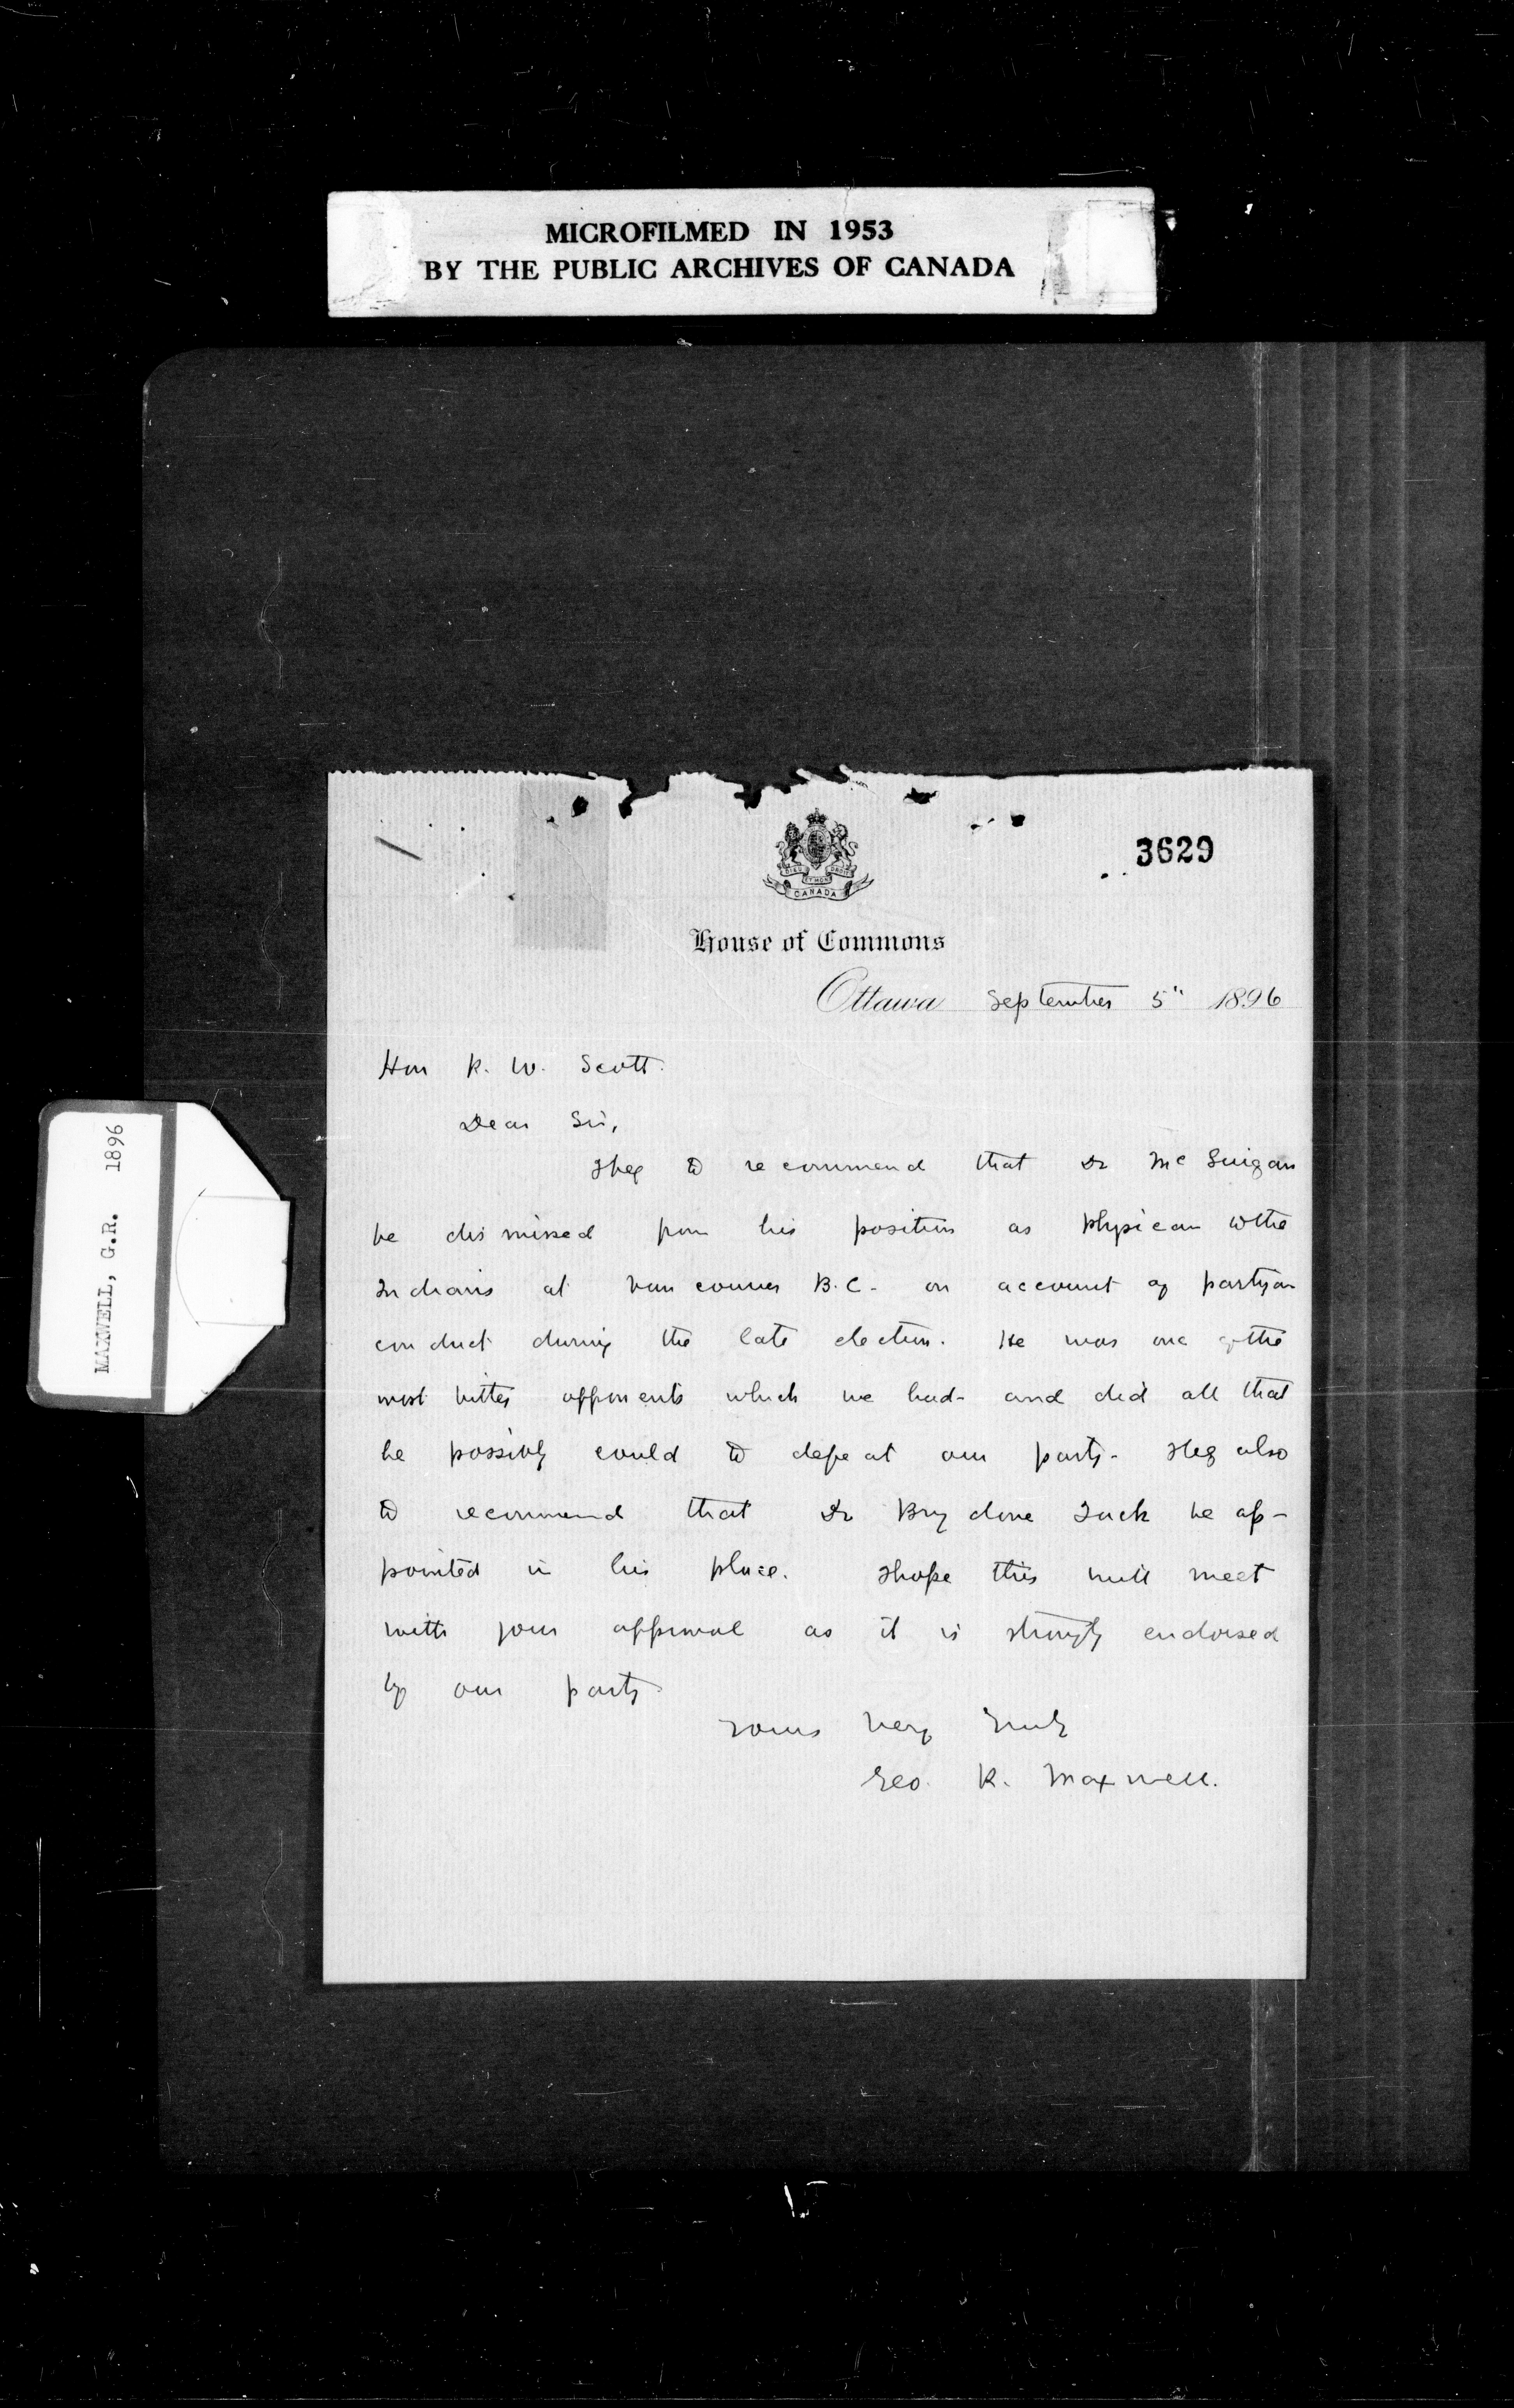 MICROFILMED IN 1953
BY THE PUBLIC ARCHIVES OF CANADA
MAXWELL, G.R. 1896
3629
DIEU ET MON DROIT
CANADA
House of Commons
Ottawa September 5" 1896
Hon R. W. Scott.
Dear Sir,
I beg to recommend that Dr McGuigan
be dismissed from his position as Physican to the
Indians at Vancouver B.C. on account of partyan
conduct during the late election. He was one of the
most bitter opponents which we had - and did all that
he possibly could to defeat our party - I beg also
to recommend that Dr Brydone Jack be ap-
pointed in his place. I hope this will meet
with your approval as it is strongly endorsed
by our party.
Yours very truly
Geo. R. Maxwell.